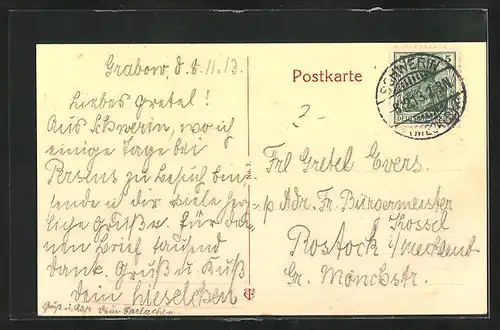 Grabow, d. 6.11.13.
Liebes Gretel!
Aus Schwerin, wo ich
einige Tage bei
zu Besuch bin
sende ich dir viele herz-
liche Grüße. Für dei-
nen Brief tausend
Dank. Gruß u. Kuß
dein Lieselchen
Gruß u. Kuß dein
No. 7.
Postkarte
2
SCHWERIN
5
DEUTSCHES
(MECKL
Frl Gretel Evers.
p Adr. Fr. Bürgermeister
Kossel
Rostock i/Mecklenb
Gr. Mönchstr.